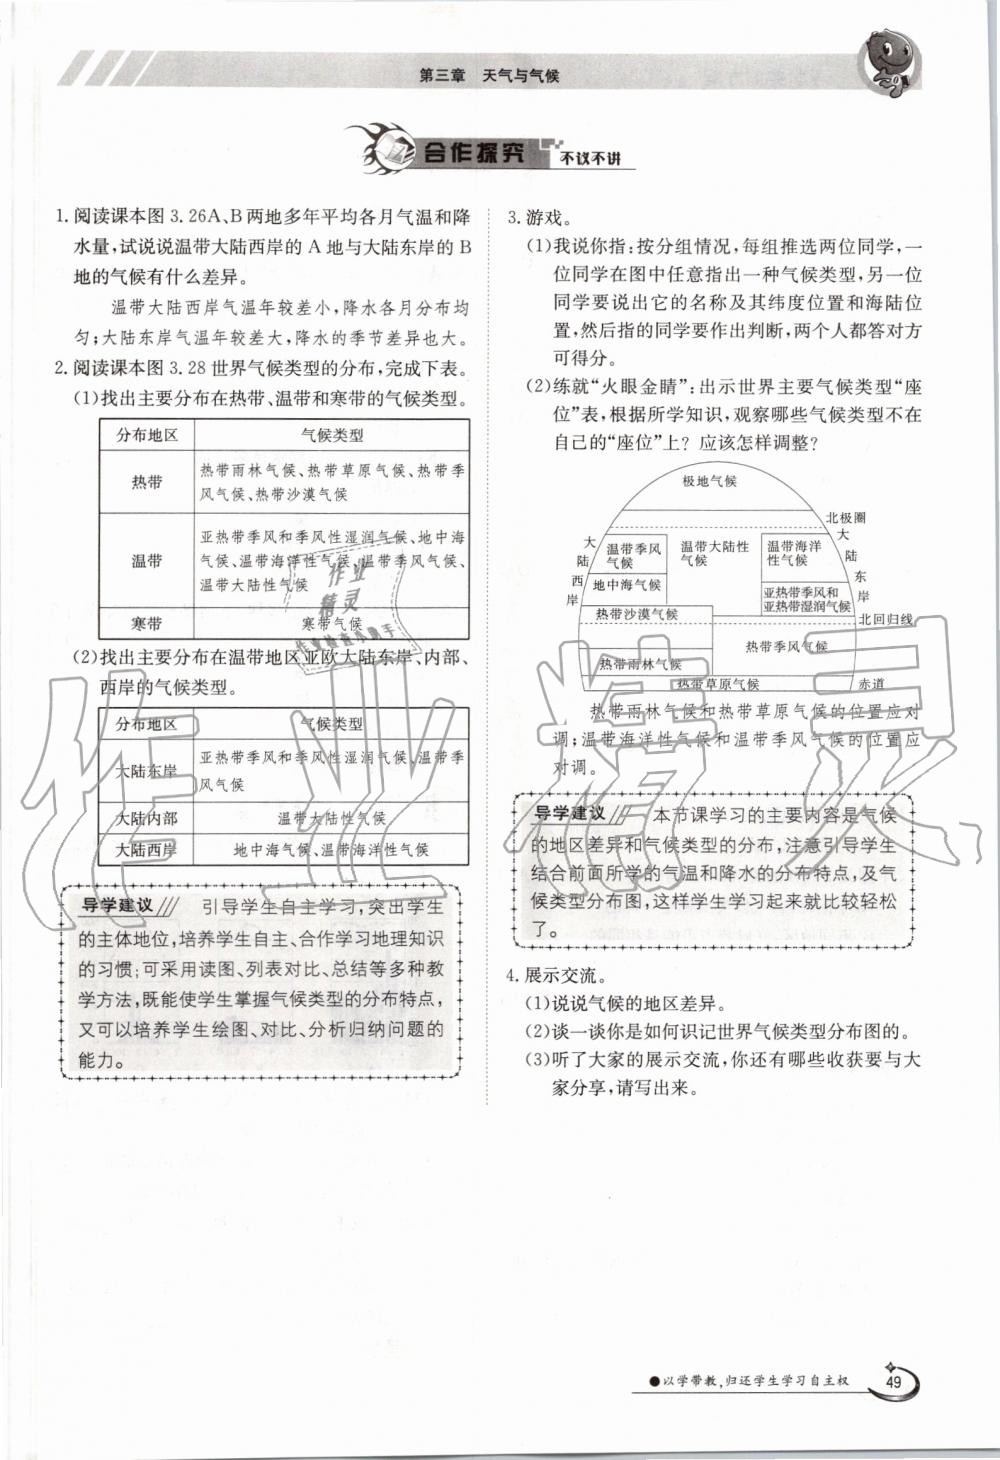 第三章 天气与气候
合作探究 不议不讲
1. 阅读课本图 3.26A、B 两地多年平均各月气温和降
水量,试说说温带大陆西岸的 A 地与大陆东岸的 B
地的气候有什么差异。
温带大陆西岸气温年较差小,降水各月分布均
匀;大陆东岸气温年较差大,降水的季节差异也大。
2. 阅读课本图 3.28 世界气候类型的分布,完成下表。
(1)找出主要分布在热带、温带和寒带的气候类型。
分布地区 气候类型
热带 热带雨林气候、热带草原气候、热带季
风气候、热带沙漠气候
温带 亚热带季风和季风性湿润气候、地中海
气候、温带海洋性气候、温带季风气候、
温带大陆性气候
寒带 寒带气候
(2)找出主要分布在温带地区亚欧大陆东岸、内部、
西岸的气候类型。
分布地区 气候类型
大陆东岸 亚热带季风和季风性湿润气候、温带季
风气候
大陆内部 温带大陆性气候
大陆西岸 地中海气候、温带海洋性气候
导学建议 引导学生自主学习,突出学生
的主体地位,培养学生自主、合作学习地理知识
的习惯;可采用读图、列表对比、总结等多种教
学方法,既能使学生掌握气候类型的分布特点,
又可以培养学生绘图、对比、分析归纳问题的
能力。
3. 游戏。
(1)我说你指:按分组情况,每组推选两位同学,一
位同学在图中任意指出一种气候类型,另一位
同学要说出它的名称及其纬度位置和海陆位
置,然后指的同学要作出判断,两个人都答对方
可得分。
(2)练就“火眼金睛”:出示世界主要气候类型“座
位”表,根据所学知识,观察哪些气候类型不在
自己的“座位”上?应该怎样调整?
极地气候
北极圈
大陆西岸
温带季风
气候
温带大陆性
气候
温带海洋
性气候
大陆东岸
地中海气候
亚热带季风和
亚热带湿润气候
热带沙漠气候
北回归线
热带季风气候
热带雨林气候
热带草原气候
赤道
热带雨林气候和热带草原气候的位置应对
调;温带海洋性气候和温带季风气候的位置应
对调。
导学建议 本节课学习的主要内容是气候
的地区差异和气候类型的分布,注意引导学生
结合前面所学的气温和降水的分布特点,及气
候类型分布图,这样学生学习起来就比较轻松
了。
4. 展示交流。
(1)说说气候的地区差异。
(2)谈一谈你是如何识记世界气候类型分布图的。
(3)听了大家的展示交流,你还有哪些收获要与大
家分享,请写出来。
作业
精灵
作业检查小助手
作业精灵
●以学带教,归还学生学习自主权
49